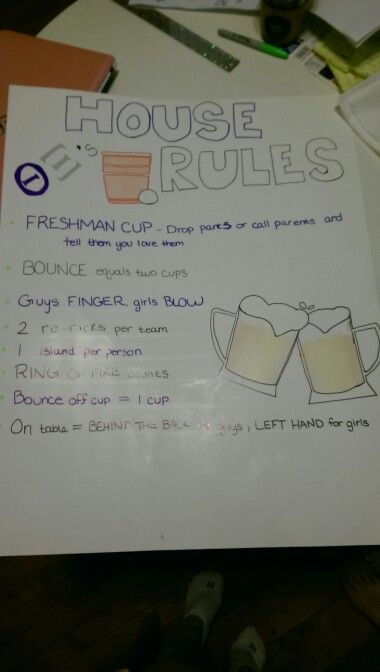 HOUSE
I [I]'s RULES
FRESHMAN CUP - Drop pants or call parents and
tell them you love them
BOUNCE equals two cups
Guys FINGER girls BLOW
2 re-racks per team
1 island per person
RING OF FIRE counts
Bounce off cup = 1 CUP
On table = BEHIND THE BACK for guys, LEFT HAND for girls